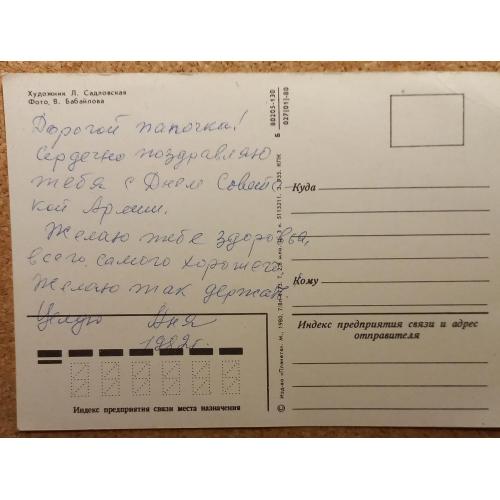 Художник Л. Садловская
Фото, В. Бабайлова
Дорогой папочка!
Сердечно поздравляю
тебя с Днем Совет-
кой Армии.
Желаю тебе здоровья,
всего самого хорошего
Желаю так держать
Целую Аня
1982г.
Индекс предприятия связи места назначения
Б 80205-130
027(01)-80
© Изд-во «Планета». М., 1980,
Куда
Кому
Индекс предприятия связи и адрес
отправителя